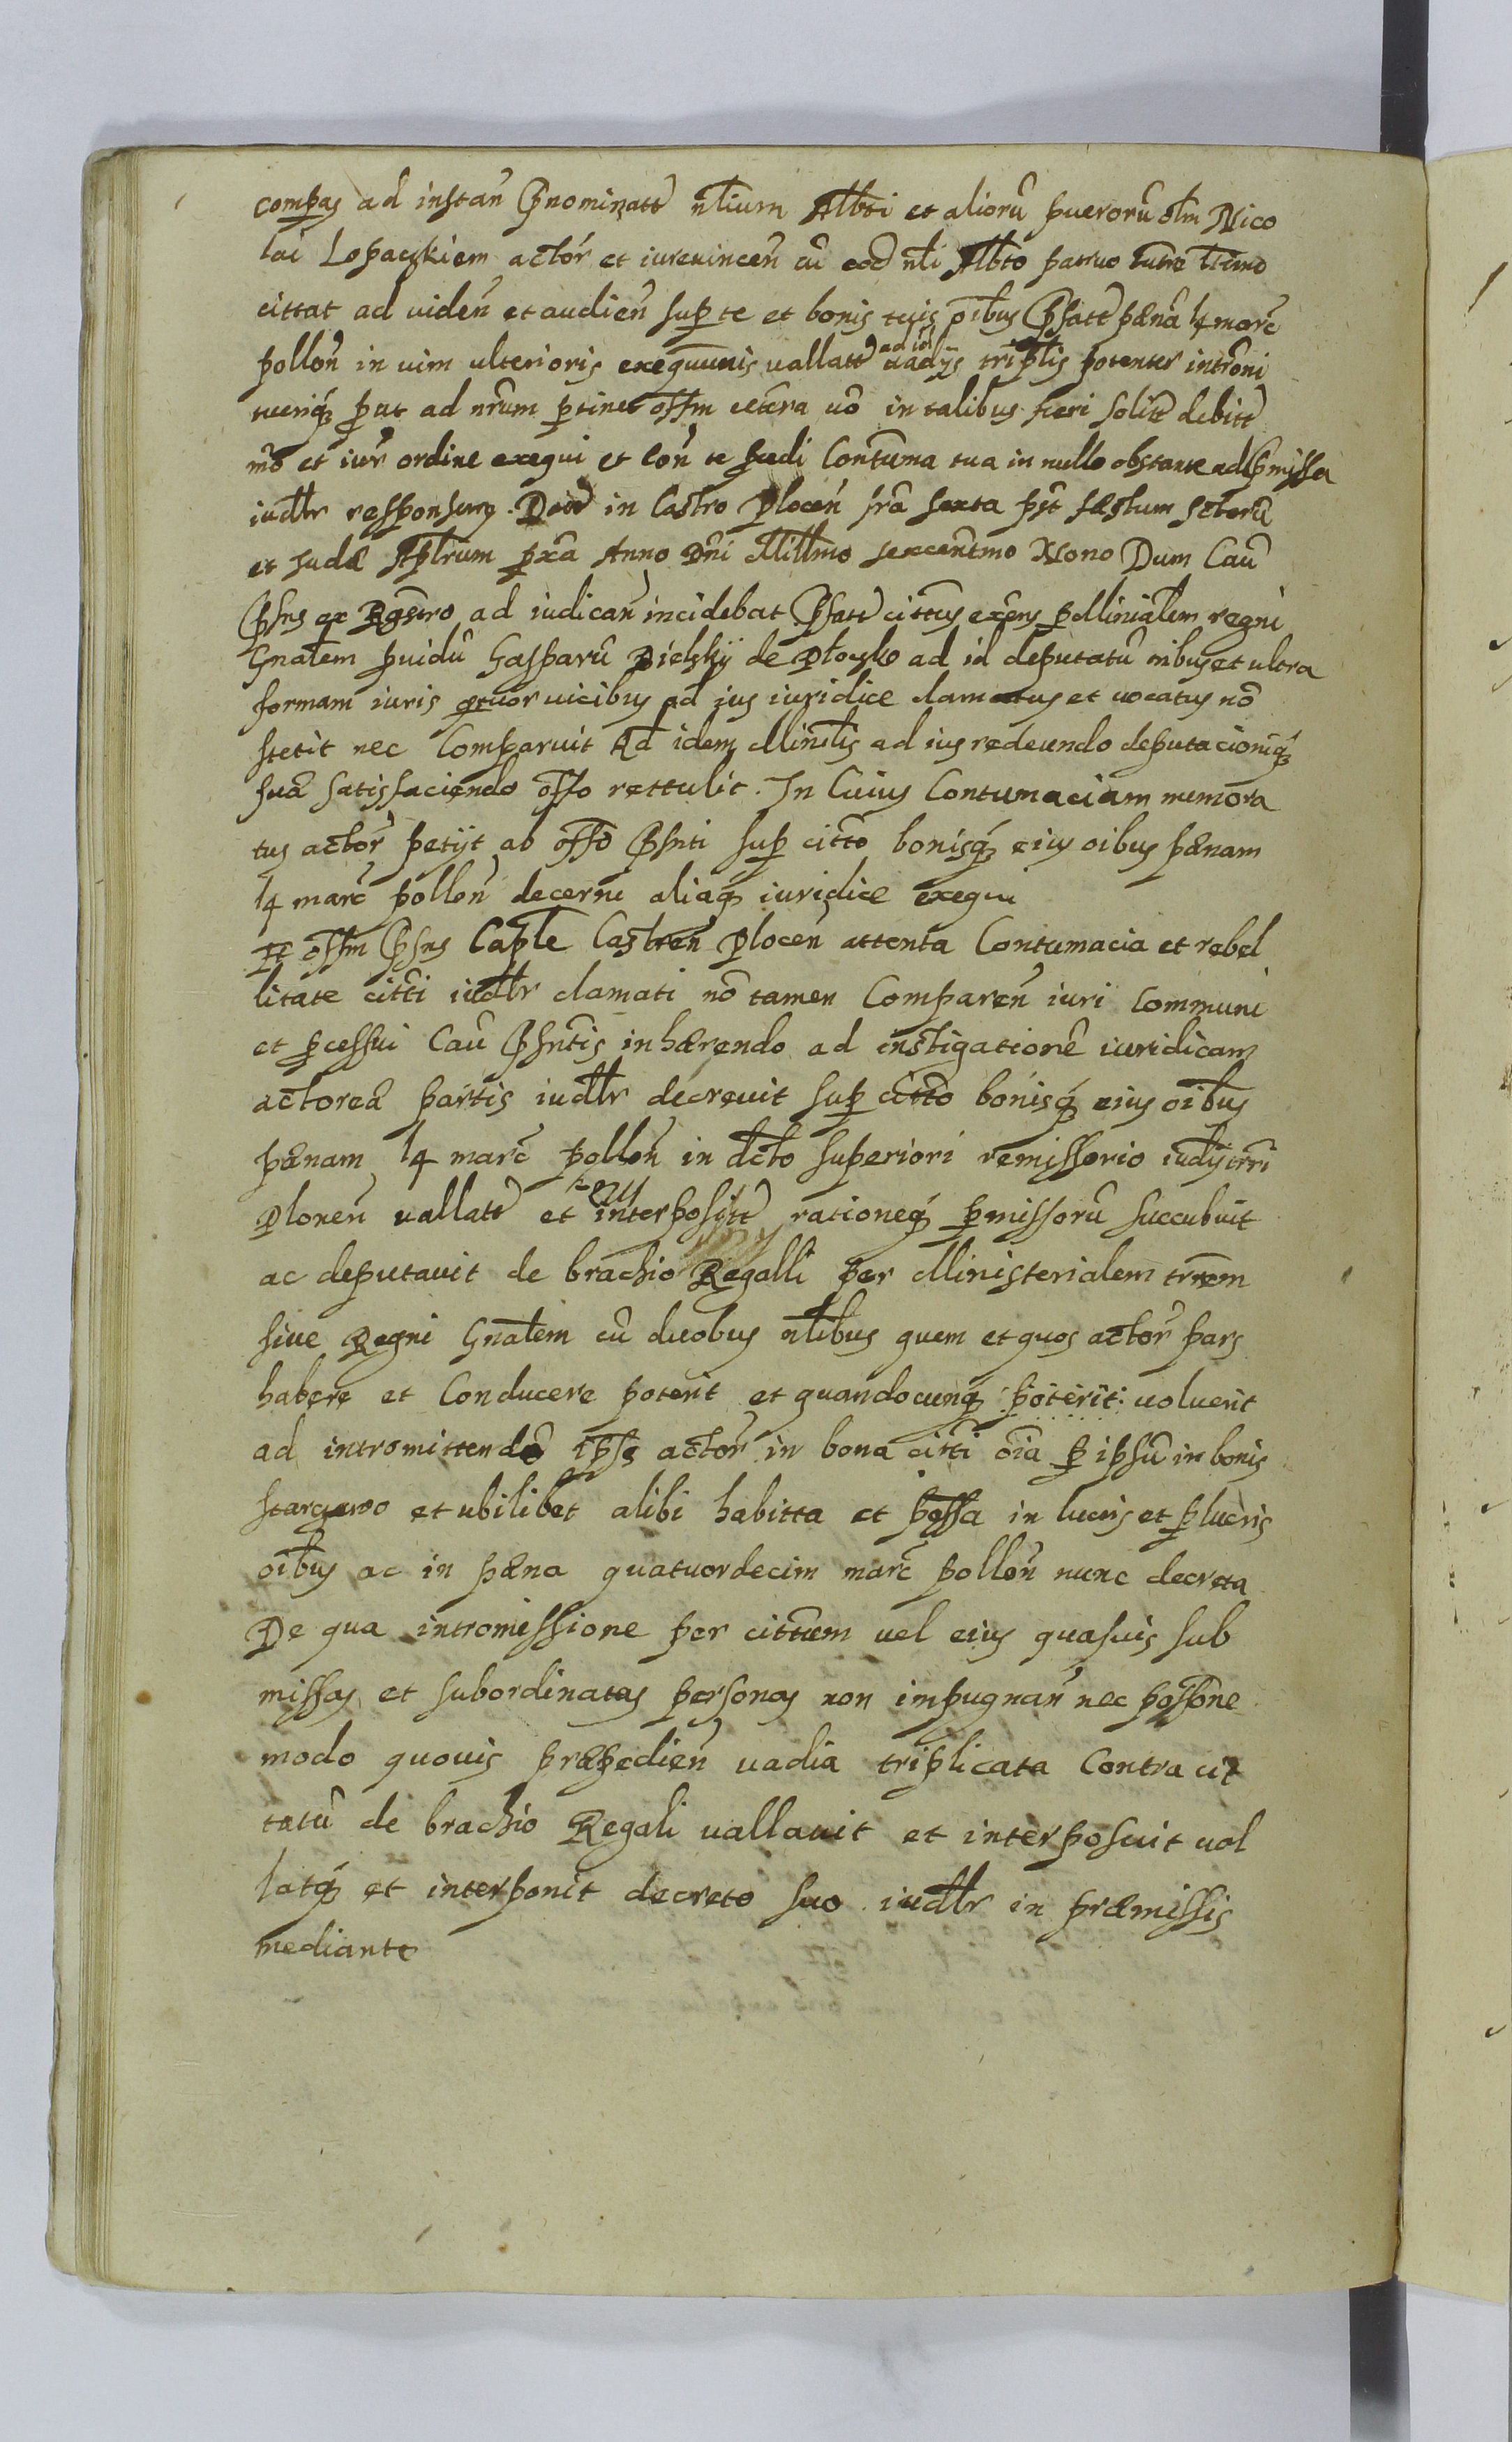 compas ad instan Pnominatt nlium Albti et alioru puerorū olm Nico
lai Lopackiem actor et iurevincen cū eod nli Albto patruo
cittat ad viden et audien sup te et bonis tuis oibus Pfatt pæna 14 marc
pollon in vim ulterioris vallatt ad id vadÿs triplis potenter intromi
tueriq; put ad nrum ptinet offm cetera vo in talibus fieri solitt debitt
mo et iur ordine exequi et con te pcedi Contuma tua in nullo obstante ad Pmissa
iudltr responsurg. Datt in Castro Plocen fra sexta pst fæstum sctorū
et Judæ Aplrum pxa Anno Dni Millmo sexcentmo Nono Dum Cau
Psns ex Rgestro ad iudican incidebat Pfatt cittus exēns p Minialem regni
Gnalem puidū Gasparū Bielskÿ de Plocsko ad id deputatū tribus et ultra
formam iuris qtuor vicibus ad ius iuridice clamatus et vocatus nō
stetit nec Comparuit Ad idem Minilis ad ius redeundo deputacioniq;
suæ satisfaciendo offo rettulit. In Cuius Contumaciam memora
tus actor petijt ab offo Psnti sup citto bonisq; eius oibus pænam
14 marc pollon decerni aliaq; iuridice exequi
Et offm Psns Caple Castren Plocen attenta Contumacia et rebel
litate citti iudltr clamati nō tamen Comparen iuri Communi
et pcessui Cau Psntis inhærendo ad instigationē iuridicam
actoreæ partis iudltr decrevit sup citto bonisq; eius oibus
pænam 14 marc pollon in dcto superiori remissorio iudÿ trri
Plonen vallatt et interpositt rationeq; pmissorū succubuit
ac deputavit de brachio Regalli per Ministerialem trrem
sive Regni Gnalem cū duobus nlibus quem et quos actor pars
habere et Conducere poterit et quandocunq; poterit: voluerit
ad intromittendū ipse actor in bona citti oia p ipsū in bonis
Stargewo et ubilibet alibi habitta et possa in lucris et plucris
oibus ac in pæna quatuordecim marc pollon nunc decreta
De qua intromissione per cittum vel eius quasvis sub
missas et subordinatas personas non impugnan nec possone
modo quovis præpedien vadia triplicata Contra cit
tatū de brachio Regali vallavit et interposuit val
latq; et interponit decreto suo iudltr in præmissis
mediante